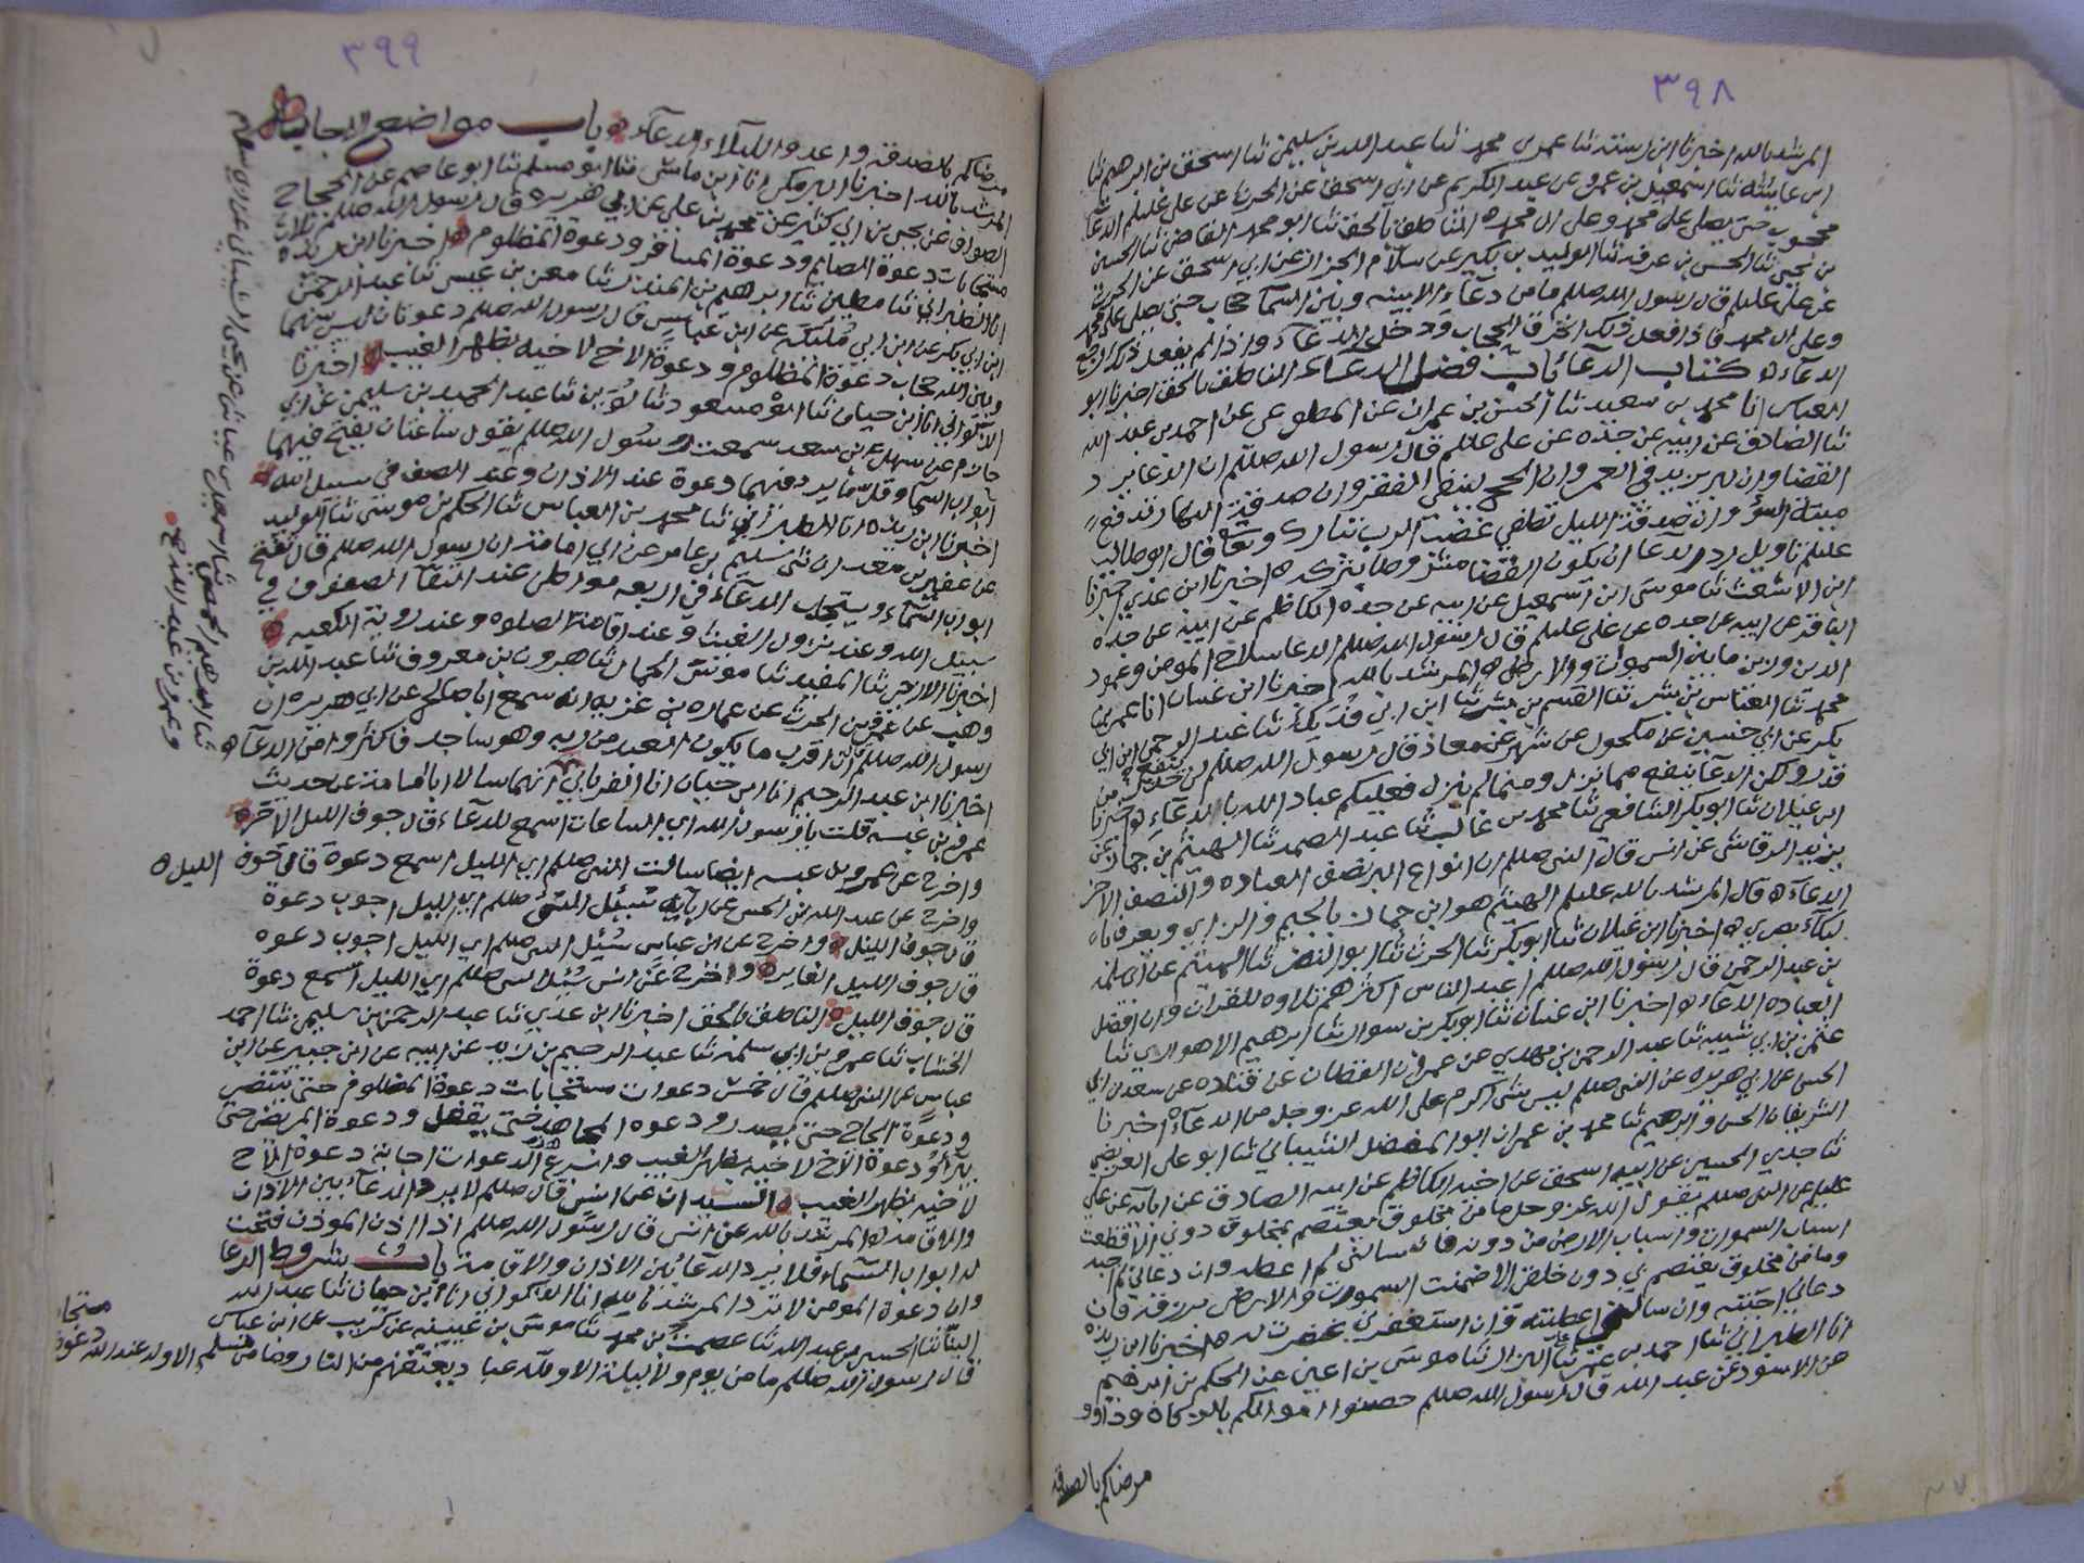 ٣٩٨
المرشد بالله اخبرنا ابن رسته ثنا عمر بن محمد ثنا عبد الله بن سليمن ثنا اسحق بن ابرهيم ثنا
ثنا اسمعيل بن عمرو عن عبد الكريم عن ابي اسحق عن الحرث عن علي عليلم الدعا
محجوب حتى يصلى على محمد وعلى ال محمد ه الناطق بالحق ثنا ابو محمد القاضي ثنا الحسين
بن يحيى ثنا الحسن بن عرفه ثنا الوليد بن بكير عن سلام الخزاز عن ابي اسحق عن الحرث
عن علي عليلم قال رسول الله صللم ما من دعآء الا بينه وبين السمآ حجاب حتى يصلى على محمد
وعلى ال محمد فاذا فعل ذلك انخرق الحجاب ودخل الدعآء واذا لم يفعل ذلك رجع
الدعآء ه كتاب الدعآ باب فضل الدعاء الناطق بالحق اخبرنا ابو
العباس انا محمد بن سعيد ثنا الحسن بن عمران عن المطوعي عن احمد بن عبد الله
ثنا الصادق عن ابيه عن جده عن علي عللم قال رسول الله صللم ان الدعا يرد
القضا وان البر يزيد في العمر وان الحج ينفي الفقر وان صدقة النهار تدفع
ميتة السؤ وان صدقة الليل تطفي غضب الرب تبارك وتعالى قال ابو طالب
عليلم تاويل رد الدعا ان يكون القضا مشروطا بتركه ه اخبرنا ابن عدي اخبرنا
ابن الاشعث ثنا موسى ابن اسمعيل عن ابيه عن جده الكاظم عن ابيه عن جده
الباقر عن ابيه عن جده عن علي عليلم قال رسول الله صللم الدعا سلاح المومن وعمود
الدين وزين ما بين السموات والارض ه المرشد بالله اخبرنا ابن غسان انا عمر بن
محمد ثنا العباس بن بشر ثنا القسم بن بشر ثنا ابن ابي فديك ثنا عبد الرحمن ابن ابي
بكر عن ابي حسين عن مكحول عن شهر عن معاذ قال رسول الله صللم لن ينفع حذر من
قدر ولكن الدعآ ينفع مما نزل ومما لم ينزل فعليكم عباد الله بالدعآء ه اخبرنا
ابن غيلان ثنا ابو بكر الشافعي ثنا محمد بن غالب ثنا عبد الصمد ثنا الهيثم بن جماز عن
يزيد الرقاشي عن انس قال النبي صللم ان انواع البر نصف العباده والنصف الاخر
الدعآء ه قال المرشد بالله عليلم الهيثم هو ابن جماز بالجيم والزاي ويعرف
بالبكآء بصري ه اخبرنا ابن غيلان ثنا ابو بكر ثنا الحرث ثنا ابو النضر ثنا الهيثم عن
بن عبد الرحمن قال رسول الله صللم اعبد الناس اكثرهم تلاوه للقران وان افضل
العباده الدعآء ه اخبرنا ابن غسان ثنا ابو بكر بن سوار ثنا ابرهيم الاهوازي ثنا
عثمن بن ابي شيبه ثنا عبد الرحمن بن مهدي عن عمران القطان عن قتاده عن سعيد بن ابي
الحسن عن ابي هريره عن النبي صللم ليس شي اكرم على الله عز وجل من الدعآء ه اخبرنا
الشريفان الحسن وابرهيم ثنا محمد بن عمران ابو المفضل الشيباني ثنا ابو علي العريضي
ثنا جدي الحسين عن ابيه اسحق عن اخيه الكاظم عن ابيه الصادق عن ابآئه عن علي
عليلم عن النبي صللم يقول الله عز وجل ما من مخلوق يعتصم بمخلوق دوني الا قطعت
اسباب السموات واسباب الارض من دونه فان سالني لم اعطه وان دعاني لم اجبه
وما من مخلوق يعتصم بي دون خلقي الا ضمنت السموات والارض برزقه فان
دعاني اجبته وان سالني اعطيته وان استغفرني غفرت له ه اخبرنا ابن ريذه
انا الطبراني ثنا احمد بن عمر ثنا علي البزار ثنا موسى بن اعين عن الحكم بن ابرهيم
عن الاسود عن عبد الله قال رسول الله صللم حصنوا اموالكم بالزكاة وداووا
مرضاكم بالصدقة
٣٩٩
مرضاكم بالصدقة واعدوا للبلآء الدعآء ه باب مواضع الاجابة
المرشد بالله اخبرنا البرمكي انا ابن ماسي ثنا ابو مسلم ثنا ابو عاصم عن الحجاج
الصواف عن يحيى بن ابي كثير عن محمد بن علي عن ابي هريره قال رسول الله صللم ثلاث
مستجابات دعوة الصايم ودعوة المسافر ودعوة المظلوم ه اخبرنا ابن ريذه
انا الطبراني ثنا مطين ثنا ابرهيم بن المنذر ثنا معن بن عيسى ثنا عبد الرحمن
ابن ابي بكر عن ابن ابي مليكة عن ابن عباس قال رسول الله صللم دعوتان ليس بينهما
وبين الله حجاب دعوة المظلوم ودعوة الاخ لاخيه بظهر الغيب ه اخبرنا
الذكواني انا ابن حيان ثنا ابو مسعود ثنا لوين ثنا عبد الحميد بن سليمن عن ابي
حازم عن سهل بن سعد سمعت رسول الله صللم يقول ساعتان يفتح فيهما
ابواب السما وقل ما يرد فيهما دعوة عند الاذان وعند الصف في سبيل الله ه
اخبرنا ابن ريذه انا الطبراني ثنا محمد بن العباس ثنا الحكم بن موسى ثنا الوليد
عن عفير بن معدان ثنى سليم بن عامر عن ابي امامة ان رسول الله صللم قال تفتح
ابواب السمآء ويستجاب الدعآء في اربعه مواطن عند التقآ الصفوف في
سبيل الله وعند نزول الغيث وعند اقامة الصلوه وعند روية الكعبه ه
اخبرنا الازجي ثنا المفيد ثنا موسى الحمال ثنا هرون بن معروف ثنا عبد الله بن
وهب عن عمرو بن الحرث عن عماره بن غزيه انه سمع ابا صالح عن ابي هريره ان
رسول الله صللم قال ان اقرب ما يكون العبد من ربه وهو ساجد فاكثروا من الدعآء ه
اخبرنا ابن عبد الرحيم انا ابن حيان انا الفريابي انهما سالا ابا امامة عن حديث
عمرو بن عبسه قلت يا رسول الله اي الساعات اسمع للدعآء قال جوف الليل الاخره
واخرج عن عمرو بن عبسه ايضا سالت النبي صللم اي الليل اسمع دعوة قال جوف الليل ه
واخرج عن عبد الله بن الحسن عن ابآئه سئل النبي صللم اي الليل اجوب دعوة
قال جوف الليل ه واخرج عن ابن عباس سئل النبي صللم اي الليل اجوب دعوه
قال جوف الليل الغابر ه واخرج عن انس سئل النبي صللم اي الليل اسمع دعوة
قال جوف الليل ه الناطق بالحق اخبرنا ابن عدي ثنا عبد الرحمن بن سليمن ثنا احمد
الخشاب ثنا عمرو بن ابي سلمه ثنا عبد الرحيم بن زيد عن ابيه عن ابن جبير عن ابن
عباس عن النبي صللم قال خمس دعوات مستجابات دعوة المظلوم حتى ينتصر
ودعوة الحاج حتى يصدر ودعوه المجاهد حتى يقفل ودعوة المريض حتى
يبرأ ودعوة الاخ لاخيه بظهر الغيب واسرع هذه الدعوات اجابة دعوة الاخ
لاخيه بظهر الغيب ه السيدان عن انس قال صللم لا يرد الدعآء بين الاذان
والاقامه ه المرشد بالله عن انس قال رسول الله صللم اذا اذن الموذن فتحت
له ابواب السمآء فلا يرد الدعآ بين الاذان والاقامة باب شروط الدعا
وان دعوة المومن لا ترد المرشد بالله انا الذكواني انا ابن حيان ثنا عبد الله
البنا ثنا الحسين بن عبد الله ثنا عصمة بن محمد ثنا موسى بن عبيده عن كريب عن ابن عباس
قال رسول الله صللم ما من يوم ولا ليلة الا ولله عباد يعتقهم من النار وما من مسلم الا وله عند الله دعوة
مستجابه
ثنا ابرهيم الحمصي ثنا اسمعيل بن عياش عن يحيى الشيباني عن
وعمرو بن عبد الله